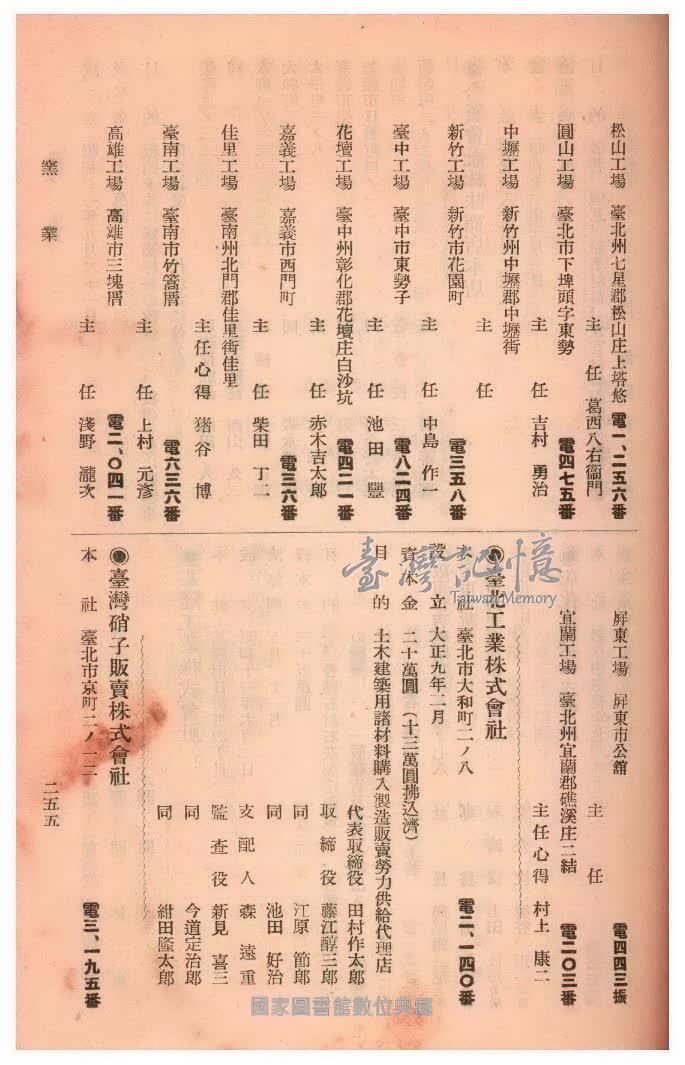 松山工場 臺北州七星郡松山庄上塔悠 電一、二五六番
主任 葛西八右衞門
圓山工場 臺北市下埤頭字東勢 電四七五番
主任 吉村勇治
中壢工場 新竹州中壢郡中壢街
主任
新竹工場 新竹市花園町 電三五八番
主任 中島作一
臺中工場 臺中市東勢子 電八二四番
主任 池田豐
花壇工場 臺中州彰化郡花壇庄白沙坑 電四二一番
主任 赤木吉太郎
嘉義工場 嘉義市西門町 電三六番
主任 柴田丁二
佳里工場 臺南州北門郡佳里街佳里
主任心得 猪谷博
臺南工場 臺南市竹篙厝 電六三六番
主任 上村元彥
高雄工場 高雄市三塊厝 電二、〇四一番
主任 淺野瀧次
窯業
屏東工場 屏東市公館 電四四三振
主任
宜蘭工場 臺北州宜蘭郡礁溪庄二結 電二〇三番
主任心得 村上康二
臺北工業株式會社
本社 臺北市大和町二ノ八 電二、一四〇番
設立 大正九年二月
資本金 二十萬圓(十三萬圓拂込濟)
目的 土木建築用諸材料購入製造販賣勞力供給代理店
代表取締役 田村作太郎
取締役 藤江醇三郎
同 江原節郎
同 池田好治
支配人 森遠重
監查役 新見喜三
同 今道定治郎
同 紺田隆太郎
◉臺灣硝子販賣株式會社
本社 臺北市京町二ノ一二 電三、一九五番
二五五
臺灣記憶
Taiwan Memory
國家圖書館數位典藏